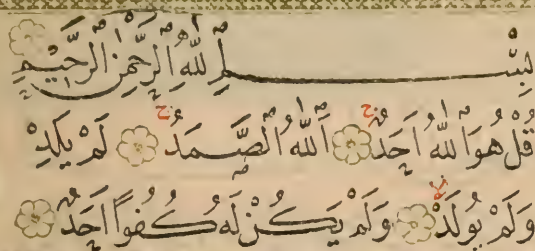 بِسْمِ اللّٰهِ الرَّحْمٰنِ الرَّحِيْمِ
قُلْ هُوَ اللّٰهُ اَحَدٌ ۚ اَللّٰهُ الصَّمَدُ ۚ لَمْ يَلِدْ
وَلَمْ يُولَدْ ۙ وَلَمْ يَكُنْ لَهُ كُفُوًا اَحَدٌ